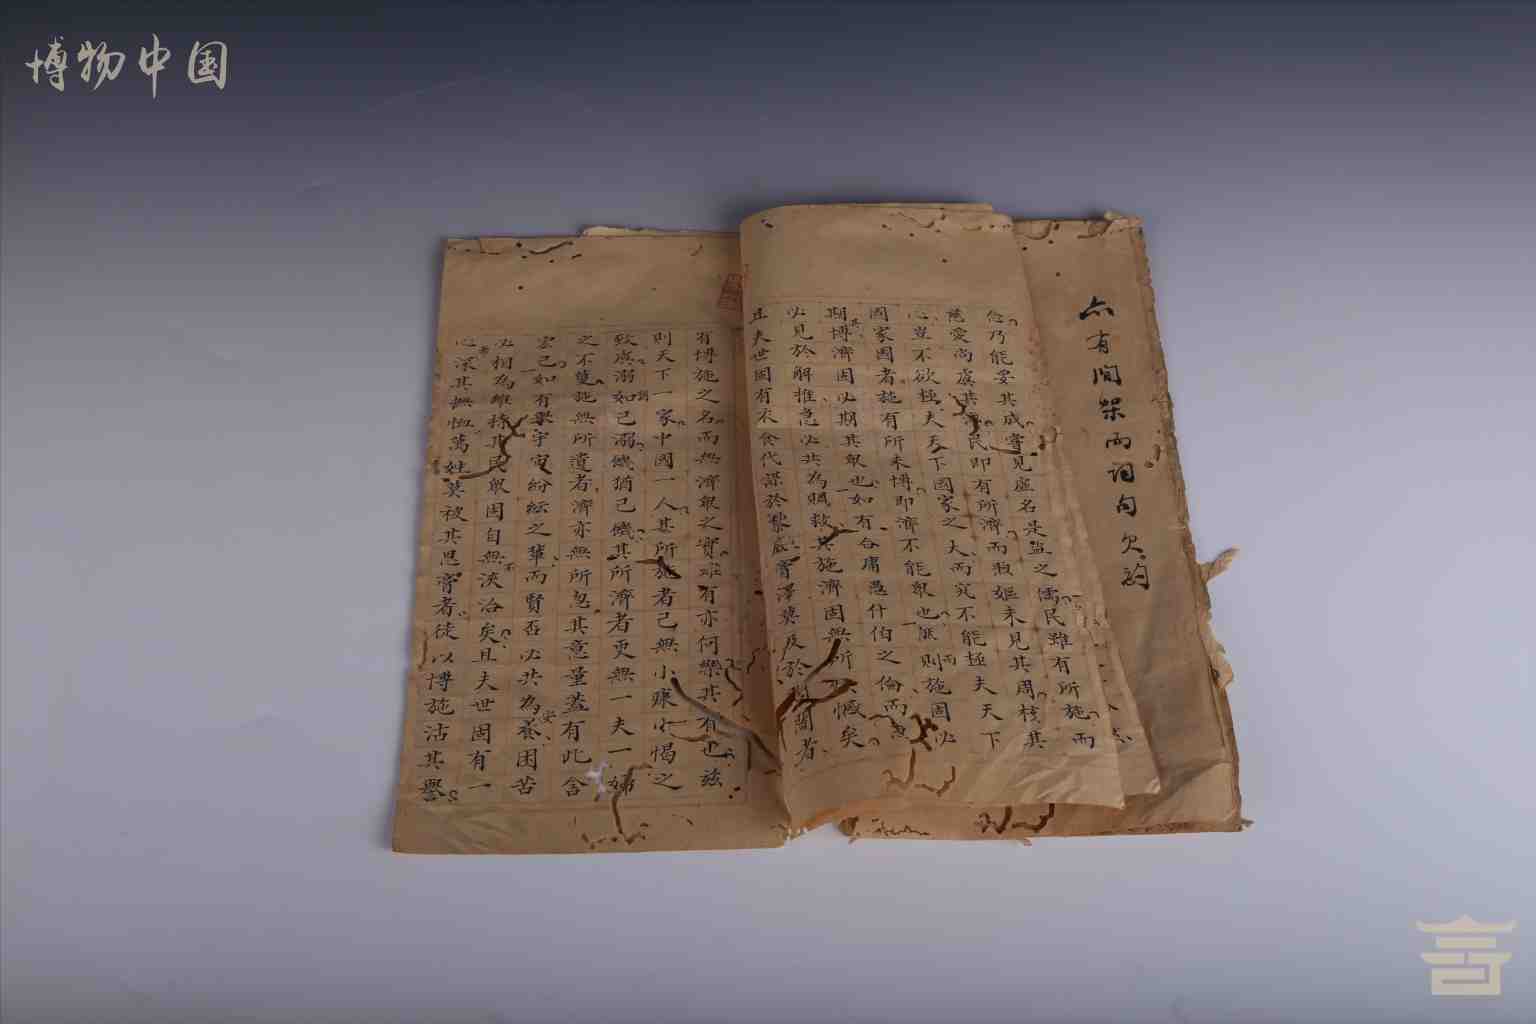 博物中国
亦有間架而詞句欠韵
念乃能要其成寧見虛名是盗之儒民雖有所施而
慈愛尚虞其民即有所濟而煦嫗未見其周核其
心豈不欲極夫天下國家之大而究不能極夫天下
國家因者施有所未博即濟不能眾也無則施固必
期博濟固必期其眾也如有合庸愚什伯之倫而
必見於解推急必共為賙救其施濟固無所憾矣
且夫世固有衣食代謀於膏澤莫及於者
有博施之名而無濟眾之實有亦何樂其有也兹
則天下一家中國一人其所施者己無小康小惕之
致虞溺如己溺饑猶己饑其所濟者更無一夫一婦
之不施無所遺者濟亦無所忽其意量蓋有此含
宏己如有宇宙紛紜之輩而賢否必共為養困苦
必相為維持其民眾固自無浹洽矣且夫世固有一
心深其撫恤萬姓莫被其恩膏者徒以博施沽其譽